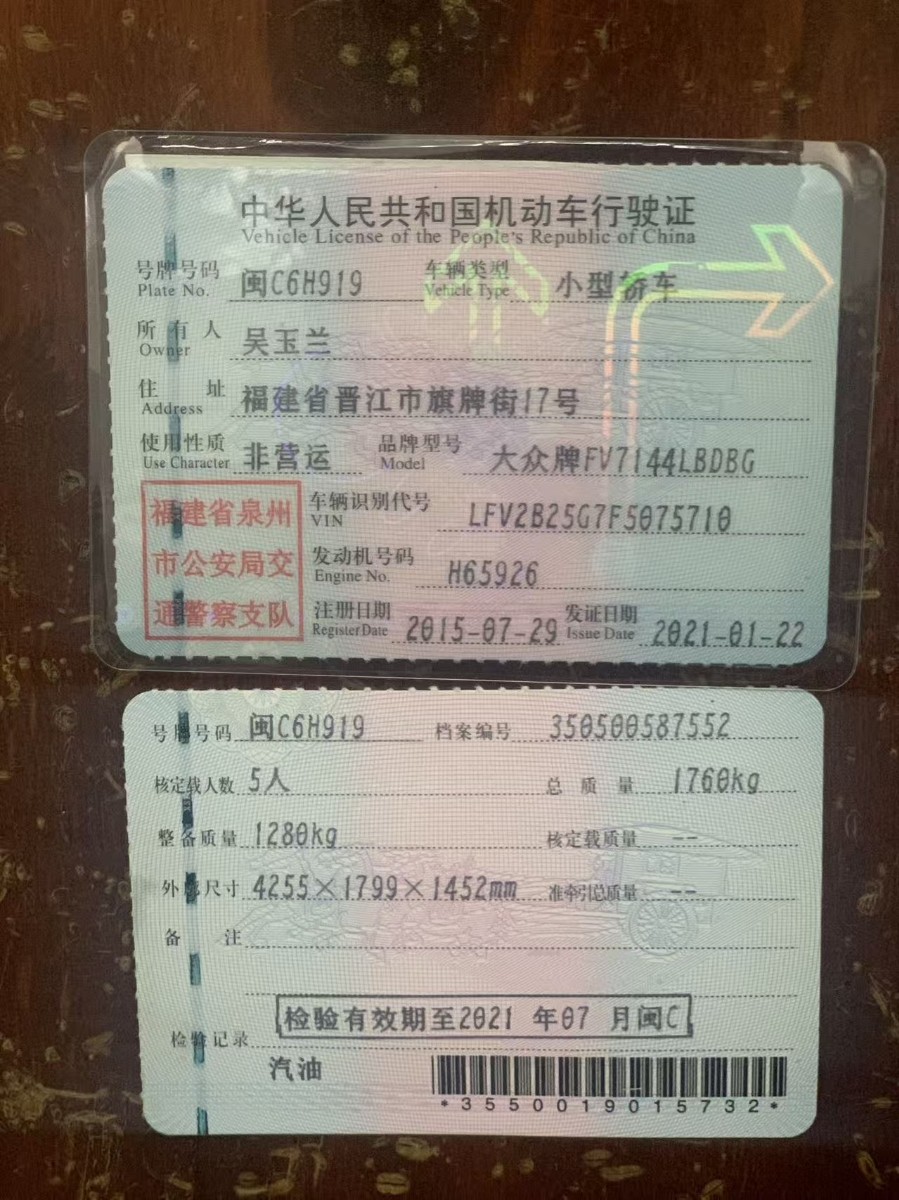 中华人民共和国机动车行驶证
Vehicle License of the People's Republic of China
号牌号码 Plate No. 闽C6H919 车辆类型 Vehicle Type 小型轿车
所有人 Owner 吴玉兰
住址 Address 福建省晋江市旗牌街17号
使用性质 Use Character 非营运 品牌型号 Model 大众牌FV7144LBDBG
福建省泉州
市公安局交
通警察支队
车辆识别代号 VIN LFV2B25G7F5075710
发动机号码 Engine No. H65926
注册日期 Register Date 2015-07-29 发证日期 Issue Date 2021-01-22
号牌号码 闽C6H919 档案编号 350500587552
核定载人数 5人 总质量 1760kg
整备质量 1280kg 核定载质量 --
外廓尺寸 4255×1799×1452mm 准牵引总质量 --
备注
检验有效期至2021 年07 月闽C
检验记录
汽油
*3550019015732*